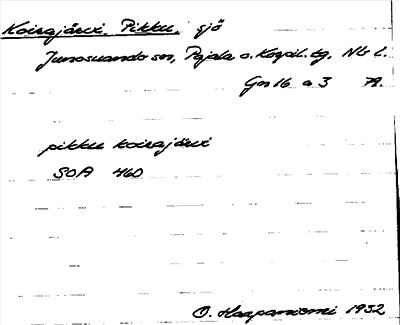 Koirajärvi, Pikku, sjö
Junosuando sn, Pajala o. Korpil. tg, Nb l.
Gos 16 a 3 7A.
pikku koirajärvi
SOA 460
O. Haapaniemi 1932